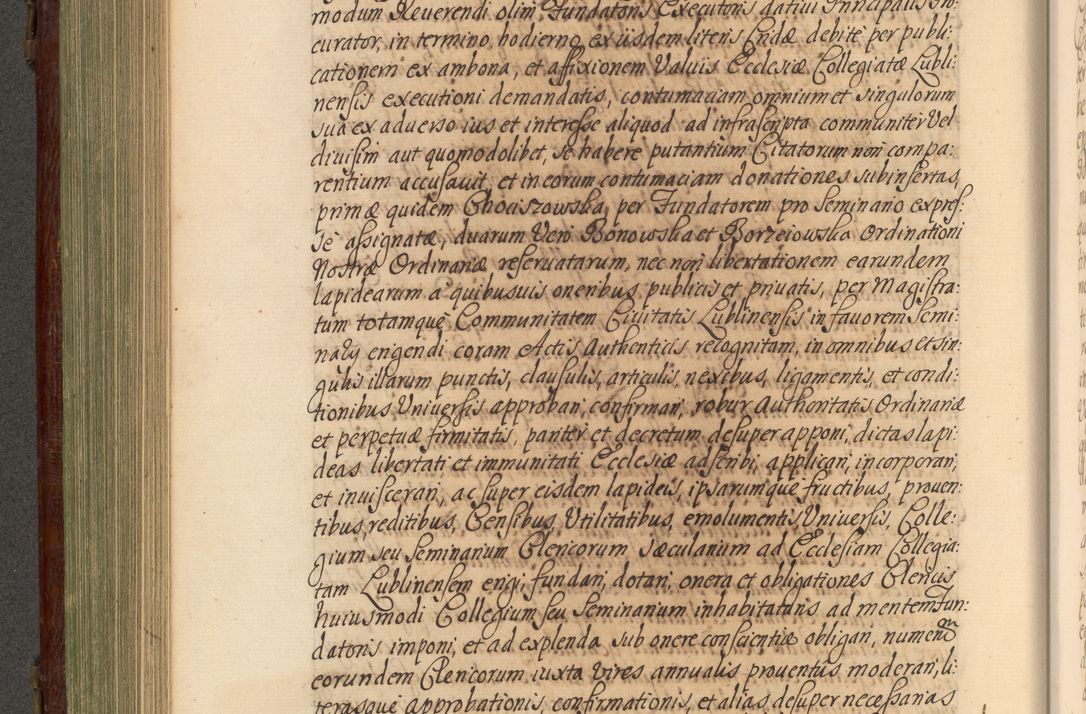 modum Reverendi olim Fundatoris Executoris dativi Principalis Pro-
curator, in termino hodierno ex iisdem literis Cñdæ debitè per publi:
cationem ex ambona, et affixionem Valuis Ecclesiæ Collegiatæ Lubli:
nensis executioni demandatis, contumaciam omnium et singulorum
sua ex adverso ius et interesse aliquod ad infrascripta communiter Vel
divisim aut quomodolibet, se habere putantium Citatorum non compa:
rentium accusavit, et in eorum contumaciam donationes subinsertas,
primæ quidem Choaszowska, per Fundatorem pro Seminario expres:
sè assignatæ, duarum Verò Bonowska et Borzeiowska Ordinationi
Nostræ Ordinariæ reservatarum, nec non libertationem earundem
lapidearum à quibusuis oneribus publicis et privatis, per Magistra:
tum totamque Communitatem Civitatis Lublinensis in favorem Semi:
narÿ erigendi coram Actis Authenticis recognitam, in omnibus et sin:
gulis illarum punctis, clausulis, articulis, nexibus, ligamentis, et condi:
tionibus Universis approbari, confirmari, robur Authoritatis Ordinariæ
et perpetuæ firmitatis, pariter et decretum desuper apponi, dictas lapi:
deas libertati et immunitati Ecclesiæ adscribi, applicari, incorporari,
et inviscerari, ac super eisdem lapideis, ipsarumque fructibus, proven:
tibus, reditibus, Censibus, Utilitatibus, emolumentis Universis, Colle:
gium seu Seminarium Clericorum sæcularium ad Ecclesiam Collegia:
tam Lublinensem erigi, fundari, dotari, onera et obligationes Clericis
huiusmodi Collegium seu Seminarium inhabitaturis ad mentem Fun:
datoris imponi, et ad explenda sub onere conscientiæ obligari, numerũ
eorundem Clericorum iuxta vires annualis proventûs moderari, li:
terasque approbationis, confirmationis, et alias desuper necessarias